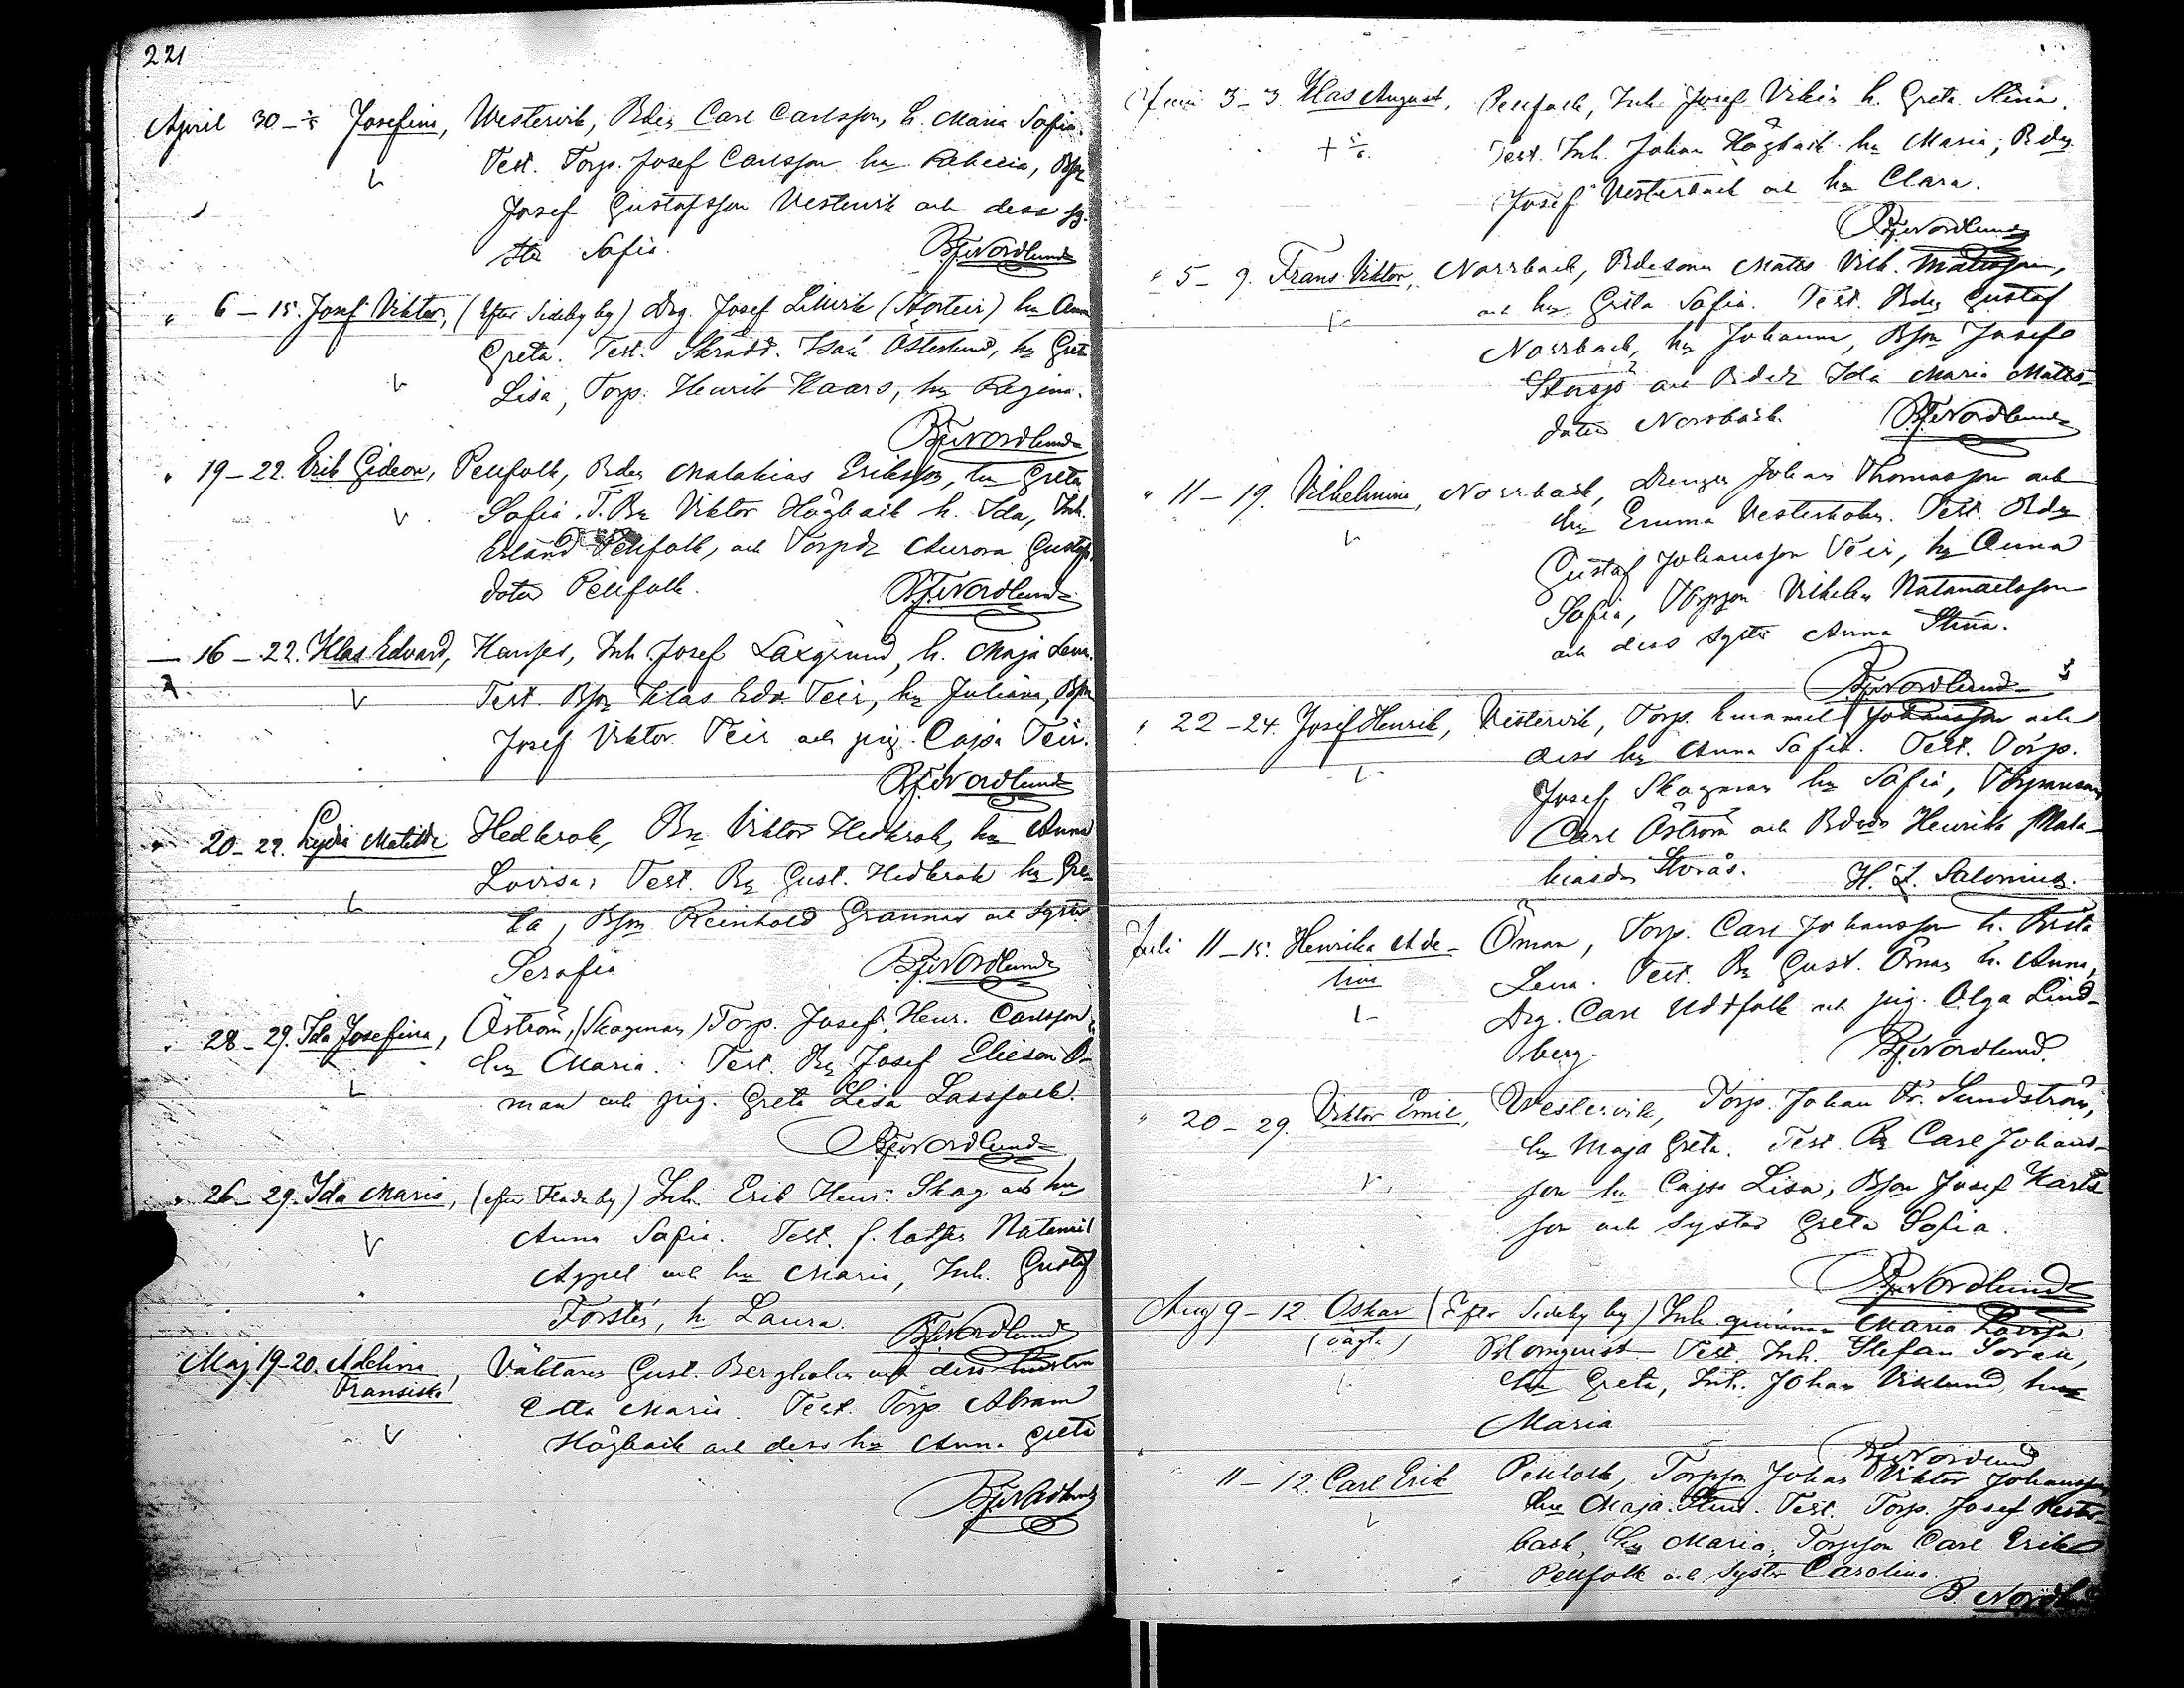 221
April 30 - Josefina, Westervik, Bdes Carl Carlsson, h. Maria Sofia.
Test. Torp. Josef Carlsson hu Rebecca,
Josef Gustafsson Vestervik och dess sy-
ster Sofia.
BfNordlund
" 6 - 15. Josef Viktor, (Efter Sideby by) Drg. Josef Lillvik (Storteir) hu Anna
Greta. Test. Skrädd. Isak Österlund, hu Greta
Lisa, Torp. Henrik Kaars, hu Regina.
BfNordlund
" 19 - 22. Erik Gideon, Pellfolk, Bdes Malakias Eriksson, hu Greta
Sofia. T. Bn Viktor Högback h. Ida, Inh.
Erland Pellfolk, och Torpdr Aurora Gustafs
dotter Pellfolk.
BfNordlund
16 - 22. Klas Edvard, Inh. Josef Laxgrund, h. Maja Lena.
Test. Bsn Klas Edv. Teir, hu Juliana, Bsn
Josef Viktor Teir och pig. Cajsa Teir.
BfNordlund
20 - 22. Lydia Matilda Hedkrok, Bn Viktor Hedkrok, hu Anna
Lovisa; Test. Bn Gust. Hedkrok hu Gre-
ta, Bsn Reinhold Grannas och syster
Serafia
BfNordlund
28 - 29. Ida Josefina, Åström, (Skagman) Torp. Josef Henr. Carlsson,
hu Maria. Test. Bn Josef Elieson Ö-
man och pig. Greta Lisa Lassfolk.
BfNordlund
26 - 29. Ida Maria, (efter Flada by) Inh. Erik Henr. Skog och hu
Anna Sofia. Test. f. lotsen Nataniel
Appel och hu Maria, Inh. Gustaf
Forstén, h. Laura.
BfNordlund
Maj 19-20. Adelina Väktaren Gust. Bergholm och dess hustru
Fransiska
Edla Maria. Test. Torp. Abram
Högback och dess hu Anna Greta
BfNordlund
Juni 3 - 3. Klas August, Pellfolk, Inh. Josef Vikén h. Greta Stina.
+ 5/6. Test. Inh. Johan Högback hu Maria, Bdes
Josef Vesterback och hu Clara.
BfNordlund
" 5 - 9. Frans Viktor, Norrback, Bdesonen Matts Vilh. Mattsson,
och hu Greta Sofia. Test. Bdes Gustaf
Norrback, hu Johanna, Bsn Josef
Storsjö och Bdedr Ida Maria Matts-
dotter Norrback.
BfNordlund
" 11 - 19. Vilhelmina, Norrback, Drengen Johan Thomasson och
hu Emma Vesterholm. Test. Bdes
Gustaf Johansson Teir, hu Anna
Sofia, Torpson Vilhelm Natanaelsson
och dess syster Anna Stina.
BfNordlund
" 22 - 24. Josef Henrik, Vestervik, Torp. Emanuel Johansson och
dess hu Anna Sofia. Test. Torp.
Josef Skagman hu Sofia,
Carl Åström och Bdedr Henrika Mala-
kiasdr Storås.
H. L. Salonius.
Juli 11 - 15. Henrika Ade- Öman, Torp. Carl Johansson h. Brita
lina
Lena. Test. Bn Gust. Öman h. Anna,
Drg. Carl Uddfolk och pig. Olga Lind-
berg.
BfNordlund.
" 20 - 29. Viktor Emil, Westervik, Torp. Johan Fr. Sundström,
hu Maja Greta. Test. Bn Carl Johans-
son hu Cajsa Lisa, Bson Josef Karls
son och syster Greta Sofia.
BfNordlund
Aug 9 - 12. Oskar (Efter Sideby by) Inh. qvinnan Maria Lovisa
(oägta)
Blomqvist. Test. Inh. Stefan
hu Greta, Inh. Johan Viklund, hu
Maria
BfNordlund
11 - 12. Carl Erik Pellfolk, Torpson Johan Viktor Johansson
hu Maja Stina. Test. Torp. Josef Vester-
back, hu Maria, Torpson Carl Erik
Pellfolk och syster Carolina.